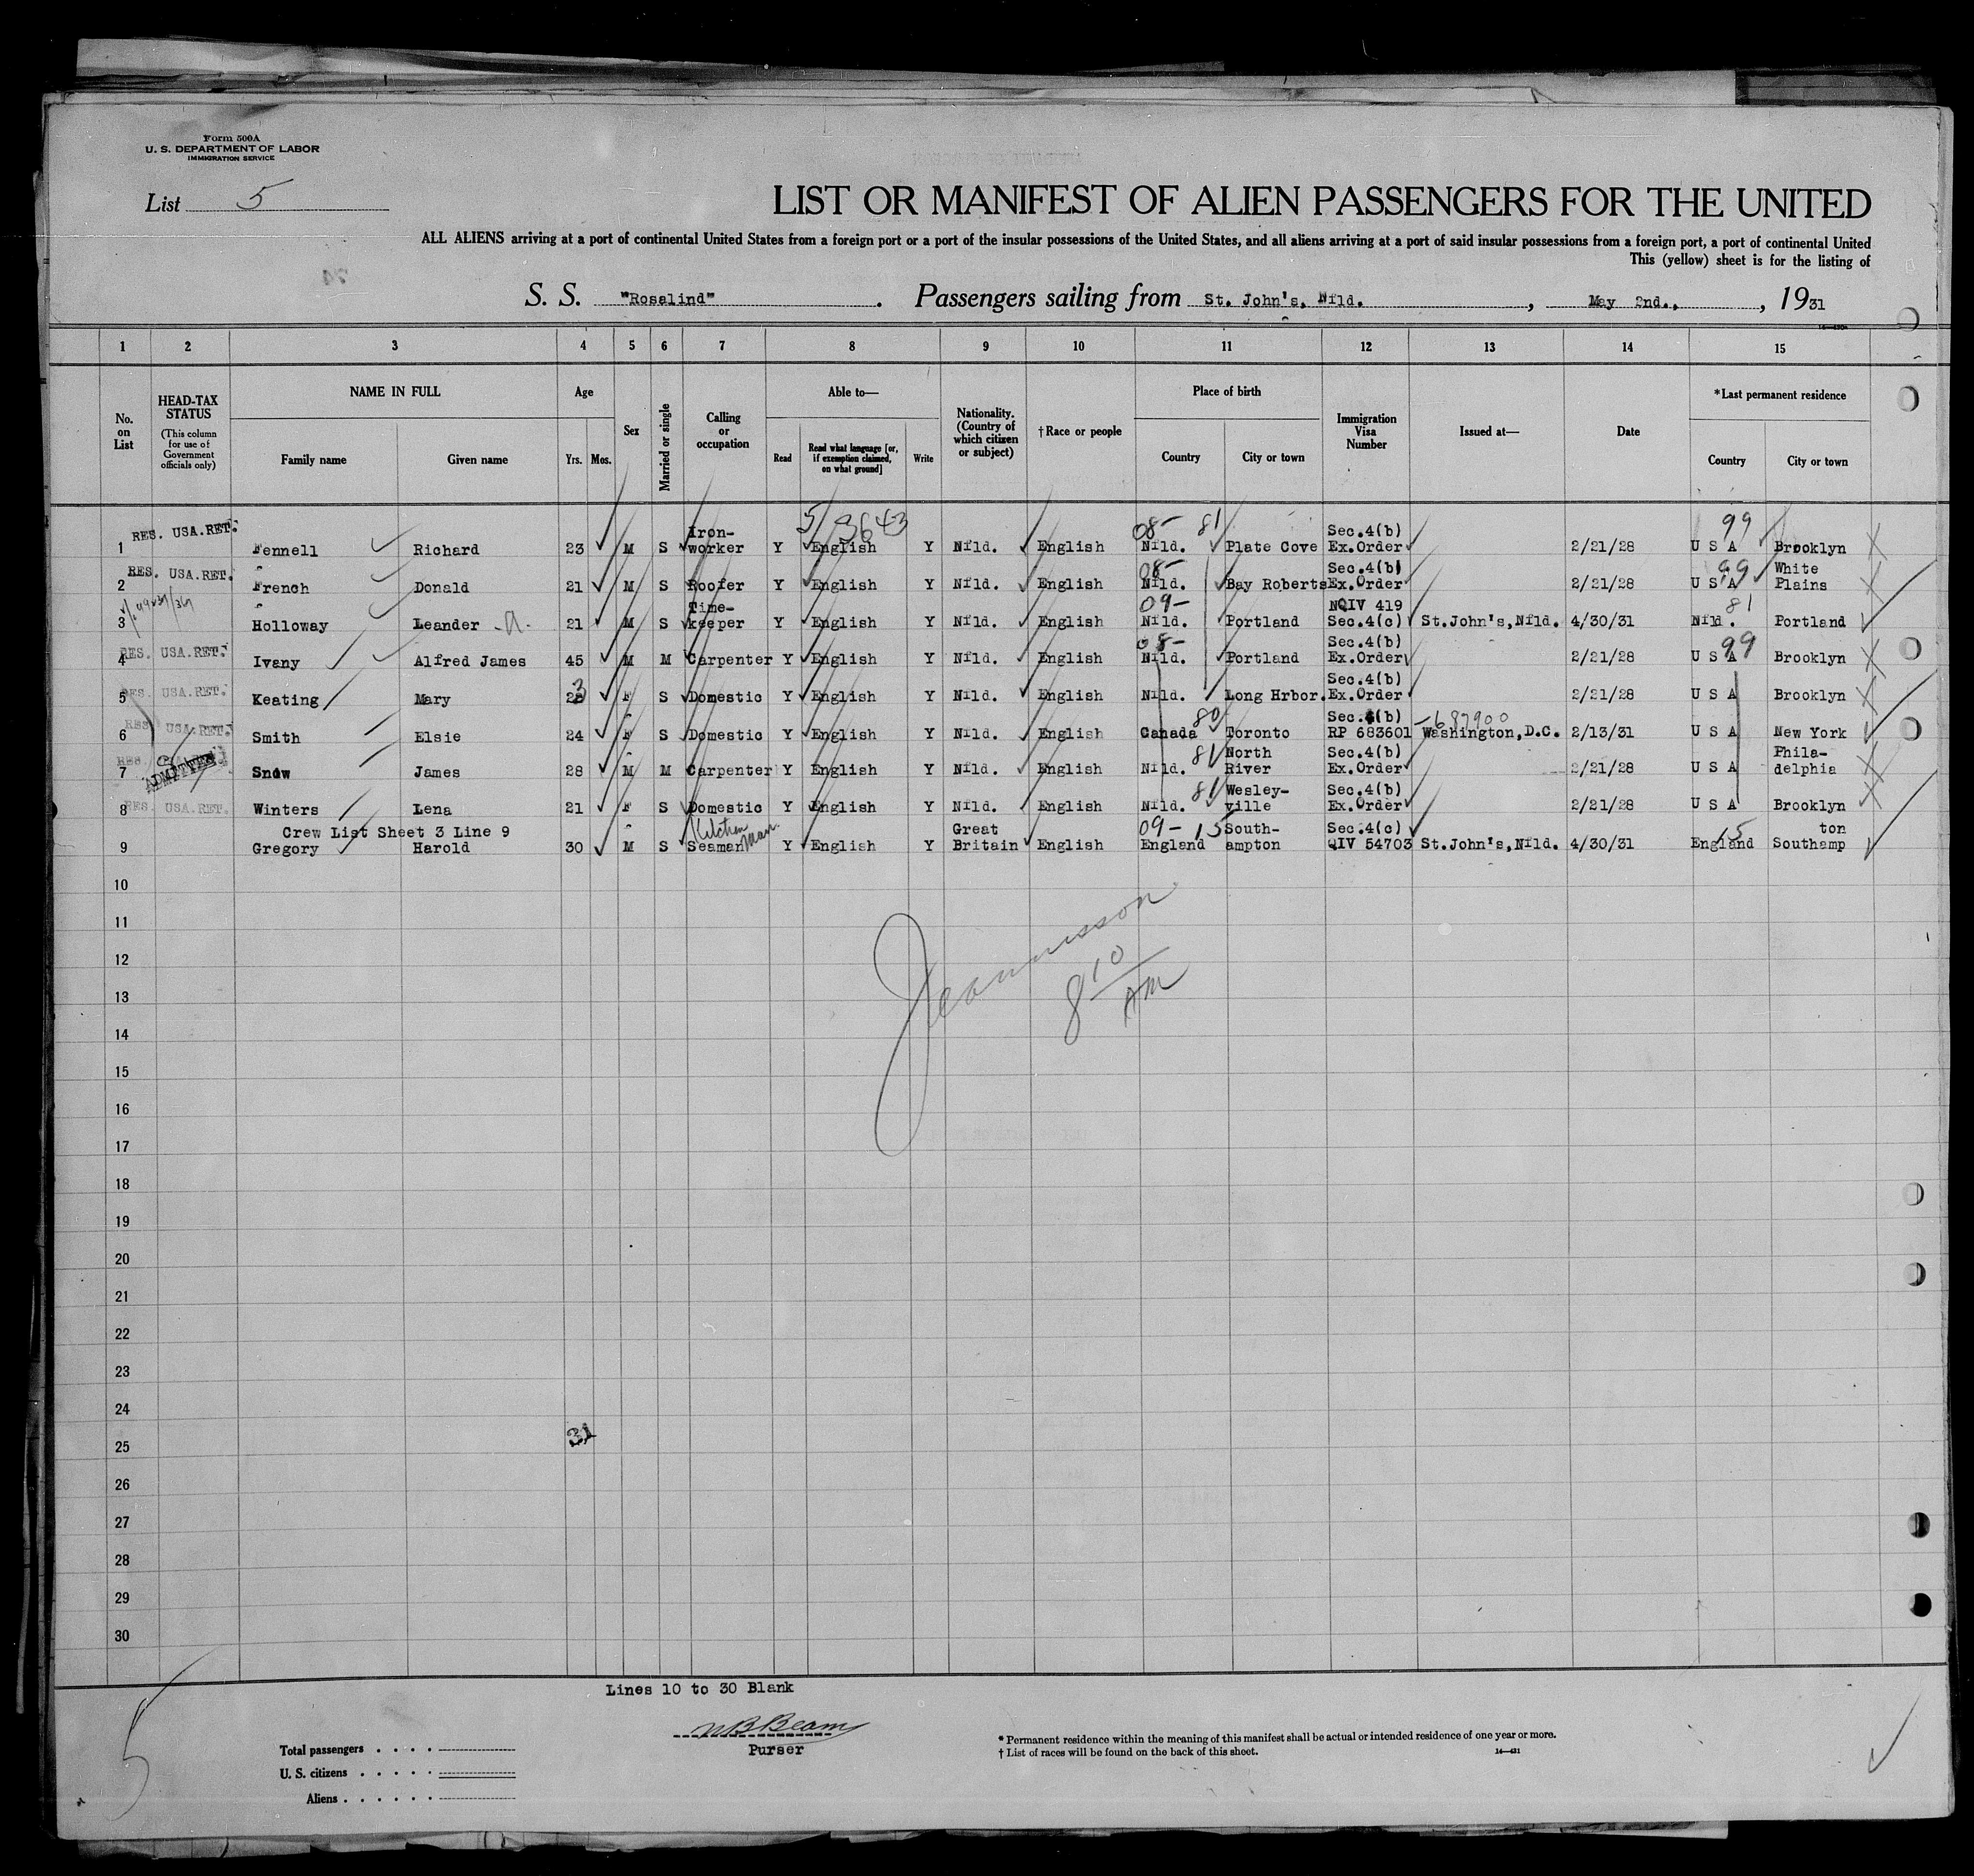 Form 500A
U. S. DEPARTMENT OF LABOR
IMMIGRATION SERVICE
List 5
LIST OR MANIFEST OF ALIEN PASSENGERS FOR THE UNITED
ALL ALIENS arriving at a port of continental United States from a foreign port or a port of the insular possessions of the United States, and all aliens arriving at a port of said insular possessions from a foreign port, a port of continental United
This (yellow) sheet is for the listing of
S. S. "Rosalind". Passengers sailing from St. John's, Nfld., May 2nd., 1931
1 2 3 4 5 6 7 8 9 10 11 12 13 14 15
No. on List
HEAD-TAX STATUS (This column for use of Government officials only)
NAME IN FULL
Family name Given name
Age
Yrs. Mos.
Sex
Married or single
Calling or occupation
Able to—
Read
Read what language [or, if exemption claimed, on what ground]
Write
Nationality. (Country of which citizen or subject)
† Race or people
Place of birth
Country City or town
Immigration Visa Number
Issued at—
Date
*Last permanent residence
Country City or town
5/3643
1 RES. USA.RET. Fennell Richard 23 M S Iron-worker Y English Y Nfld. English 08- 81 Nfld. Plate Cove Sec.4(b) Ex.Order 2/21/28 99 U S A Brooklyn
2 RES. USA.RET. French Donald 21 M S Roofer Y English Y Nfld. English 08- Nfld. Bay Roberts Sec.4(b) Ex.Order 2/21/28 99 U S A White Plains
3 Holloway Leander A. 21 M S Time-keeper Y English Y Nfld. English 09- Nfld. Portland NQIV 419 Sec.4(c) St.John's,Nfld. 4/30/31 81 Nfld. Portland
4 RES. USA.RET. Ivany Alfred James 45 M M Carpenter Y English Y Nfld. English 08- Nfld. Portland Sec.4(b) Ex.Order 2/21/28 99 U S A Brooklyn
5 RES. USA.RET. Keating Mary 23 F S Domestic Y English Y Nfld. English Nfld. Long Hrbor. Sec.4(b) Ex.Order 2/21/28 U S A Brooklyn
6 RES. USA.RET. Smith Elsie 24 F S Domestic Y English Y Nfld. English 80 Canada Toronto Sec.4(b) RP 683601 -687900 Washington,D.C. 2/13/31 U S A New York
7 RES. ADMITTED Snow James 28 M M Carpenter Y English Y Nfld. English 81 Nfld. North River Sec.4(b) Ex.Order 2/21/28 U S A Phila-delphia
8 RES. USA.RET. Winters Lena 21 F S Domestic Y English Y Nfld. English 81 Nfld. Wesley-ville Sec.4(b) Ex.Order 2/21/28 U S A Brooklyn
Crew List Sheet 3 Line 9
9 Gregory Harold 30 M S Seaman Kitchen Man. Y English Y Great Britain English 09- 15 England South-ampton Sec.4(c) QIV 54703 St.John's,Nfld. 4/30/31 15 England Southamp ton
10
11
12
8 10 AM
13
14
15
16
17
18
19
20
21
22
23
24
31
25
26
27
28
29
30
Lines 10 to 30 Blank
5
WB Beam
Purser
Total passengers
U. S. citizens
Aliens
* Permanent residence within the meaning of this manifest shall be actual or intended residence of one year or more.
† List of races will be found on the back of this sheet.
14—421